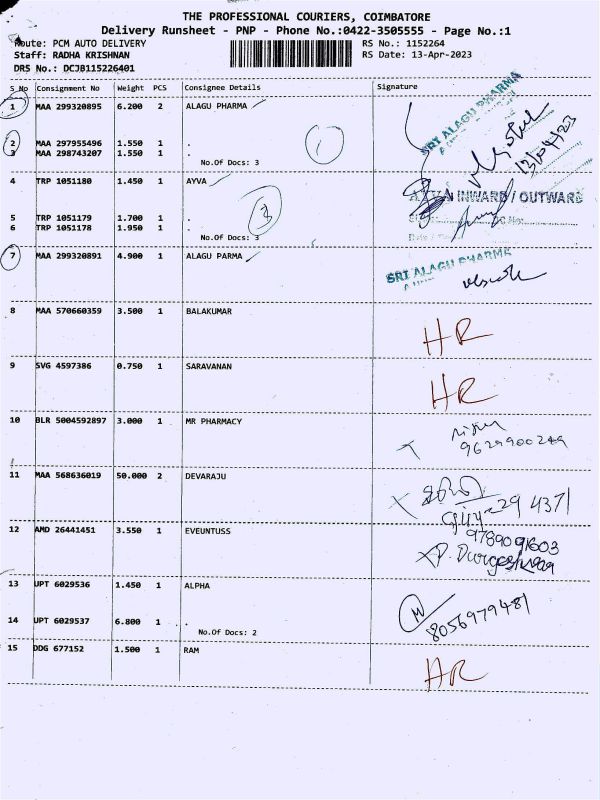 THE PROFESSIONAL COURIERS, COIMBATORE
Delivery Runsheet - PNP - Phone No.:0422-3505555 - Page No.:1
Route: PCM AUTO DELIVERY
RS No.: 1152264
Staff: RADHA KRISHNAN
RS Date: 13-Apr-2023
DRS No.: DCJB115226401
S_No Consignment No Weight PCS Consignee Details Signature
1 MAA 299320895 6.200 2 ALAGU PHARMA
SRI ALAGU PHARMA
13/04/23
2 MAA 297955496 1.550 1 .
3 MAA 298743207 1.550 1 .
No.Of Docs: 3
1
4 TRP 1051180 1.450 1 AYVA
INWARD / OUTWARD
5 TRP 1051179 1.700 1 .
6 TRP 1051178 1.950 1 .
No.Of Docs: 3
3
7 MAA 299320891 4.900 1 ALAGU PARMA
SRI ALAGU PHARMA
8 MAA 570660359 3.500 1 BALAKUMAR
HR
9 SVG 4597386 0.750 1 SARAVANAN
HR
10 BLR 5004592897 3.000 1 MR PHARMACY
9629900249
11 MAA 568636019 50.000 2 DEVARAJU
29 4371
12 AMD 26441451 3.550 1 EVEUNTUSS
9789091603
P. Durgeshwar
13 UPT 6029536 1.450 1 ALPHA
M
8056979481
14 UPT 6029537 6.800 1 .
No.Of Docs: 2
15 DDG 677152 1.500 1 RAM
HR